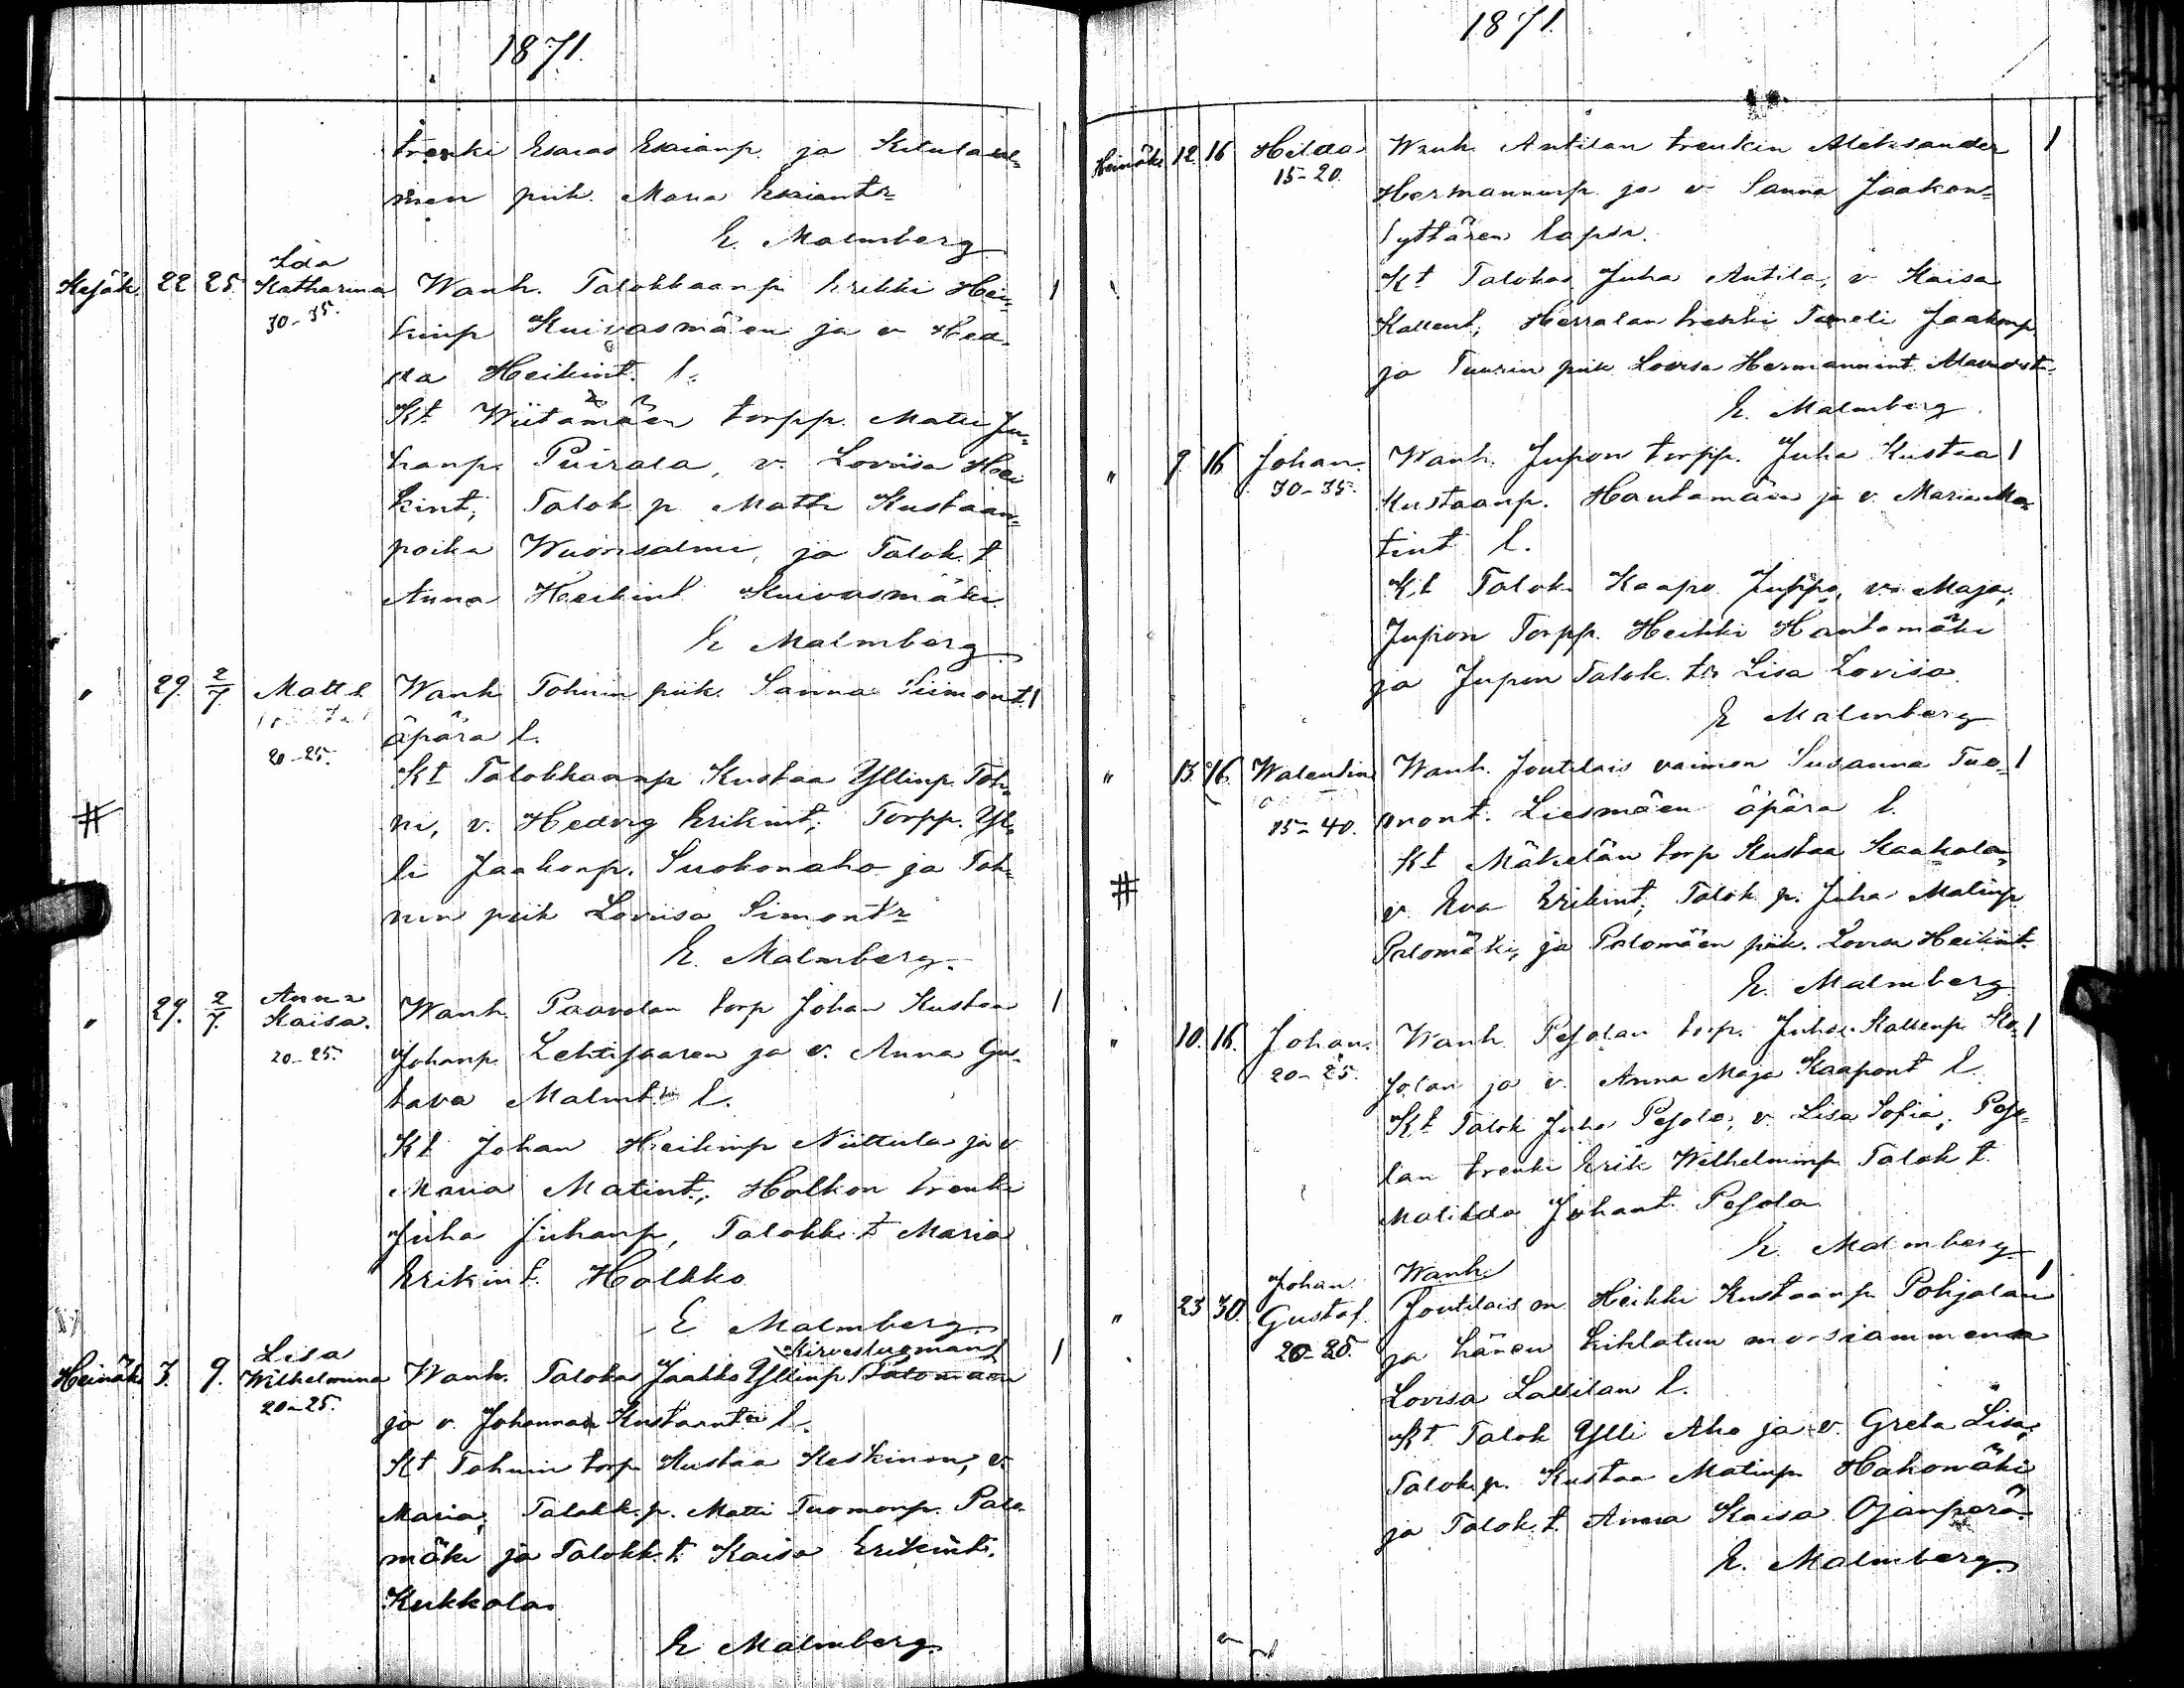 1871.
trenki Esaias Esaianp. ja Kitulaal=
men piik. Maria Esaiantr
E. Malmberg
Kesäk. 22 25. Ida Katharina 30-35. Wanh. Talokkaanp Erikki Hei= 1
kinp Kuivasmäen ja v Hed=
da Heikint. l.
Kt Wiitamäen torpp. Matti Ju=
hanp. Puirala, v. Loviisa Hei
kint; Talok p Matti Kustaan=
poika Wuorisalmi, ja Talok. t
Anna Heikint Kuivasmäki.
E Malmberg
" 29. 2/7. Matts 20-25. Wanh Tohnin piik. Sanna Siimont. 1
äpärä l.
Kt Talokkaanp Kustaa Yllinp. Toh=
ni, v. Hedvig Erikint; Torpp. Yl=
li Jaakonp. Suokonaho ja Toh=
nin piik Loviisa Simontr
E. Malmberg.
#
" 29. 2/7. Anna Kaisa. 20-25. Wanh. Paavolan torp Johan Kustaa 1
Johanp. Lehtisaaren ja v. Anna Gus=
tava Malmt l.
Kt Johan Heikinp Niittula ja v
Maria Matint.; Holkon trenki
Juha Juhanp, Talokk. t Maria
Erikint. Holkko
E Malmberg.
Kirvesluoman
Heinäk 3. 9. Lisa Wilhelmina 20-25. Wanh. Talokas Jaakko Yllinp Palomäen 1
ja v. Johanna Kustaant l.
Kt Tohnin torp Kustaa Keskinen, v.
Maria; Talokk. p. Matti Tuomonp. Palo
mäki ja Talokk. t. Kaisa Erikint.
Kukkola
E Malmberg.
1871.
Heinäk. 12. 16 Hilda 15-20. Wanh. Antilan trenkin Aleksander 1
Hermanninp. ja v Sanna Jaakon=
tyttären lapsi.
Kt Talokas Juha Antila, v Kaisa
Kallent; Herralan trenki Taneli Jaakonp
ja Tuurin piik Lovisa Hermannint Alavudesta.
E. Malmberg.
" 9. 16 Johan. 30-35. Wanh. Jupon torpp. Juha Kustaa 1
Kustaanp. Hautamäen ja v. Maria Ma
tint l.
Kt Talok. Kaapo Juppo, v. Maja;
Jupon Torpp. Heikki Hautamäki
ja Jupon Talok. tr Lisa Lovisa
E Malmberg
" 13. 16. Walentin 35-40. Wanh. Joutilais vaimon Susanna Tuo= 1
mont. Liesmäen äpärä l.
Kt Mäkelän torp Kustaa Kaakola,
v. Eva Erikint; Talok. p. Juha Matinp
Palomäki, ja Palomäen piik. Lovisa Heikint.
E. Malmberg
#
" 10. 16. Johan. 20-25. Wanh Pesolan torp. Juha Kallenp. Ko= 1
jolan ja v. Anna Maja Kaapont l
Kt Talok Juha Pesola; v. Lisa Sofia; Peso=
lan trenki Erik Wilhelminp Talok t.
Matilda Johant. Pesola
E. Malmberg
" 23 30. Johan Gustaf. 20-25. Wanh. 1
Joutilais m Heikki Kustaanp Pohjalan
ja hänen kihlatun morsiammensa
Lovisa Lassilan l.
Kt. Talok Ylli Aho ja v. Greta Lisa;
Talok. p. Kustaa Matinp Hakomäki
ja Talok. t. Anna Kaisa Ojanperä.
E. Malmberg.